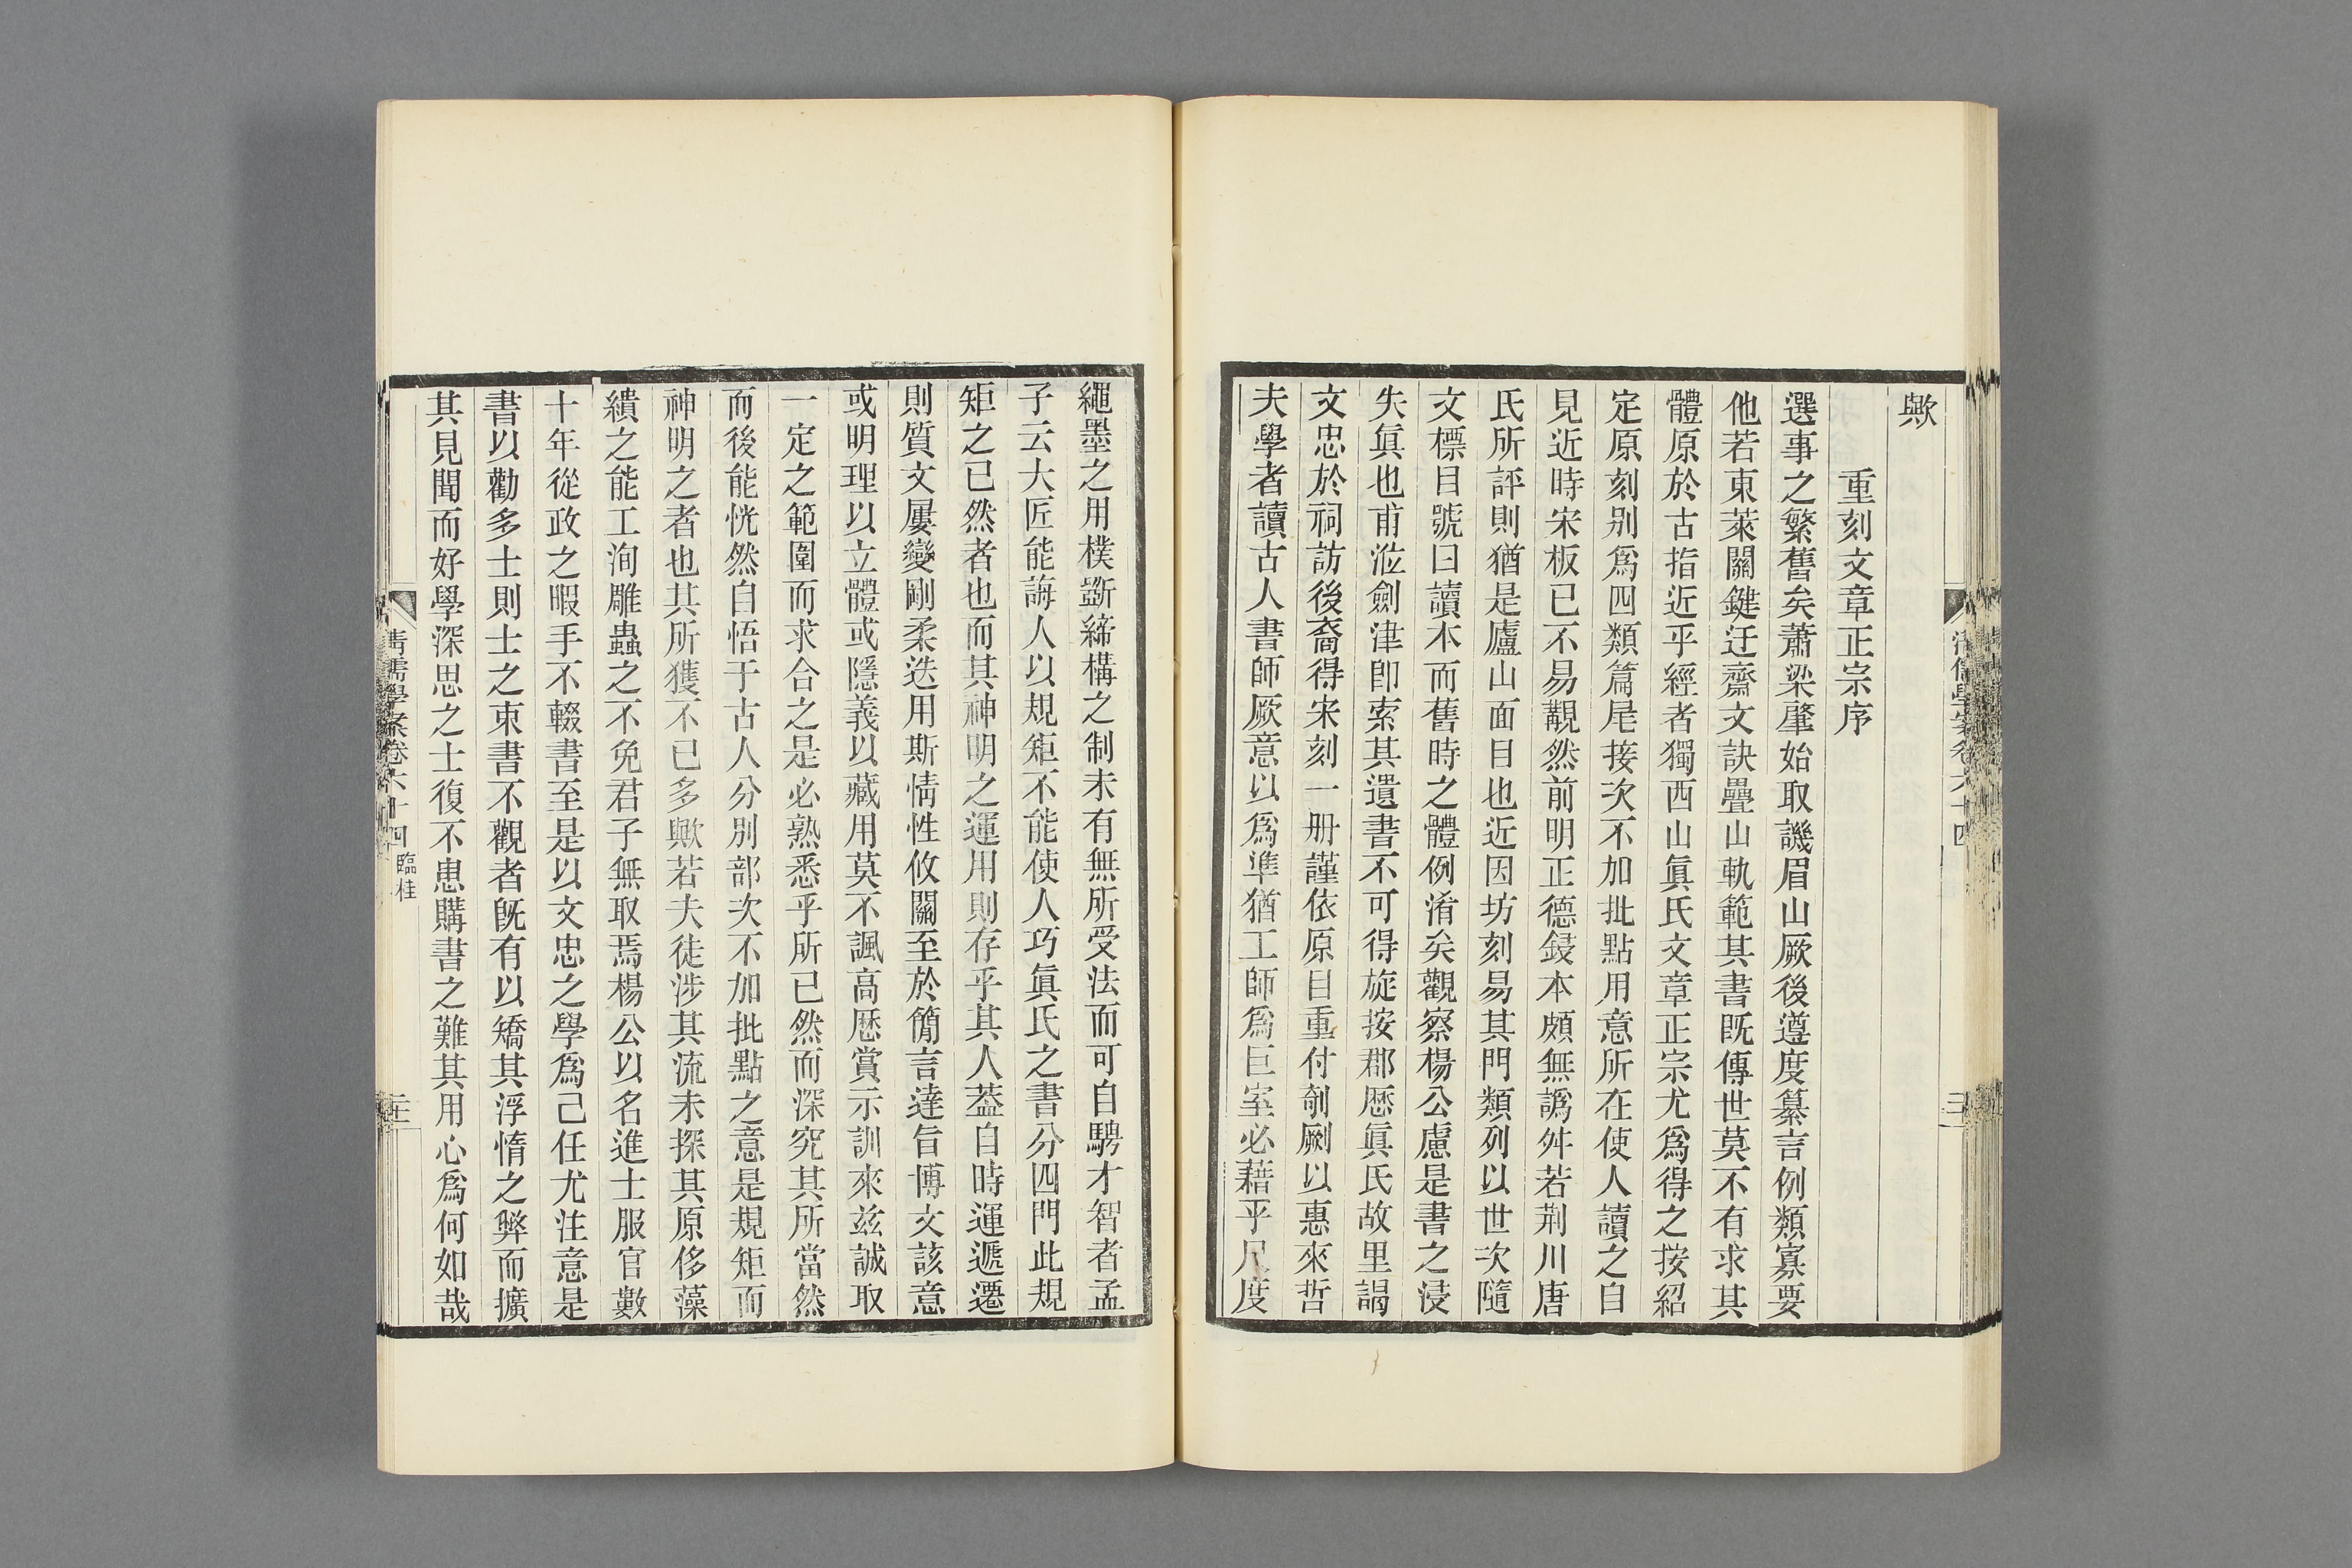 歟
重刻文章正宗序
選事之繁舊矣蕭梁肇始取譏眉山厥後遵度纂言例類寡要
他若東萊關鍵迂齋文訣疊山軌範其書旣傳世莫不有求其
體原於古指近乎經者獨西山眞氏文章正宗尤爲得之按紹
定原刻别爲四類篇尾接次不加批點用意所在使人讀之自
見近時宋板已不易覯然前明正德鋟本頗無譌舛若荆川唐
氏所評則猶是廬山面目也近因坊刻易其門類列以世次隨
文標目號曰讀本而舊時之體例淆矣觀察楊公慮是書之浸
失眞也甫涖劍津卽索其遺書不可得旋按郡歷眞氏故里謁
文忠於祠訪後裔得宋刻一册謹依原目重付剞劂以惠來哲
夫學者讀古人書師厥意以爲準猶工師爲巨室必藉乎尺度
繩墨之用樸斲締構之制未有無所受法而可自騁才智者孟
子云大匠能誨人以規矩不能使人巧眞氏之書分四門此規
矩之已然者也而其神明之運用則存乎其人蓋自時運遞遷
則質文屢變剛柔迭用斯情性攸關至於簡言達旨博文該意
或明理以立體或隱義以藏用莫不諷高歷賞示訓來兹誠取
一定之範圍而求合之是必熟悉乎所已然而深究其所當然
而後能恍然自悟于古人分別部次不加批點之意是規矩而
神明之者也其所獲不已多歟若夫徒涉其流未探其原侈藻
繢之能工洵雕蟲之不免君子無取焉楊公以名進士服官數
十年從政之暇手不輟書至是以文忠之學爲己任尤注意是
書以勸多士則士之束書不觀者旣有以矯其浮惰之弊而擴
其見聞而好學深思之士復不患購書之難其用心爲何如哉
清儒學案卷六十四 臨桂